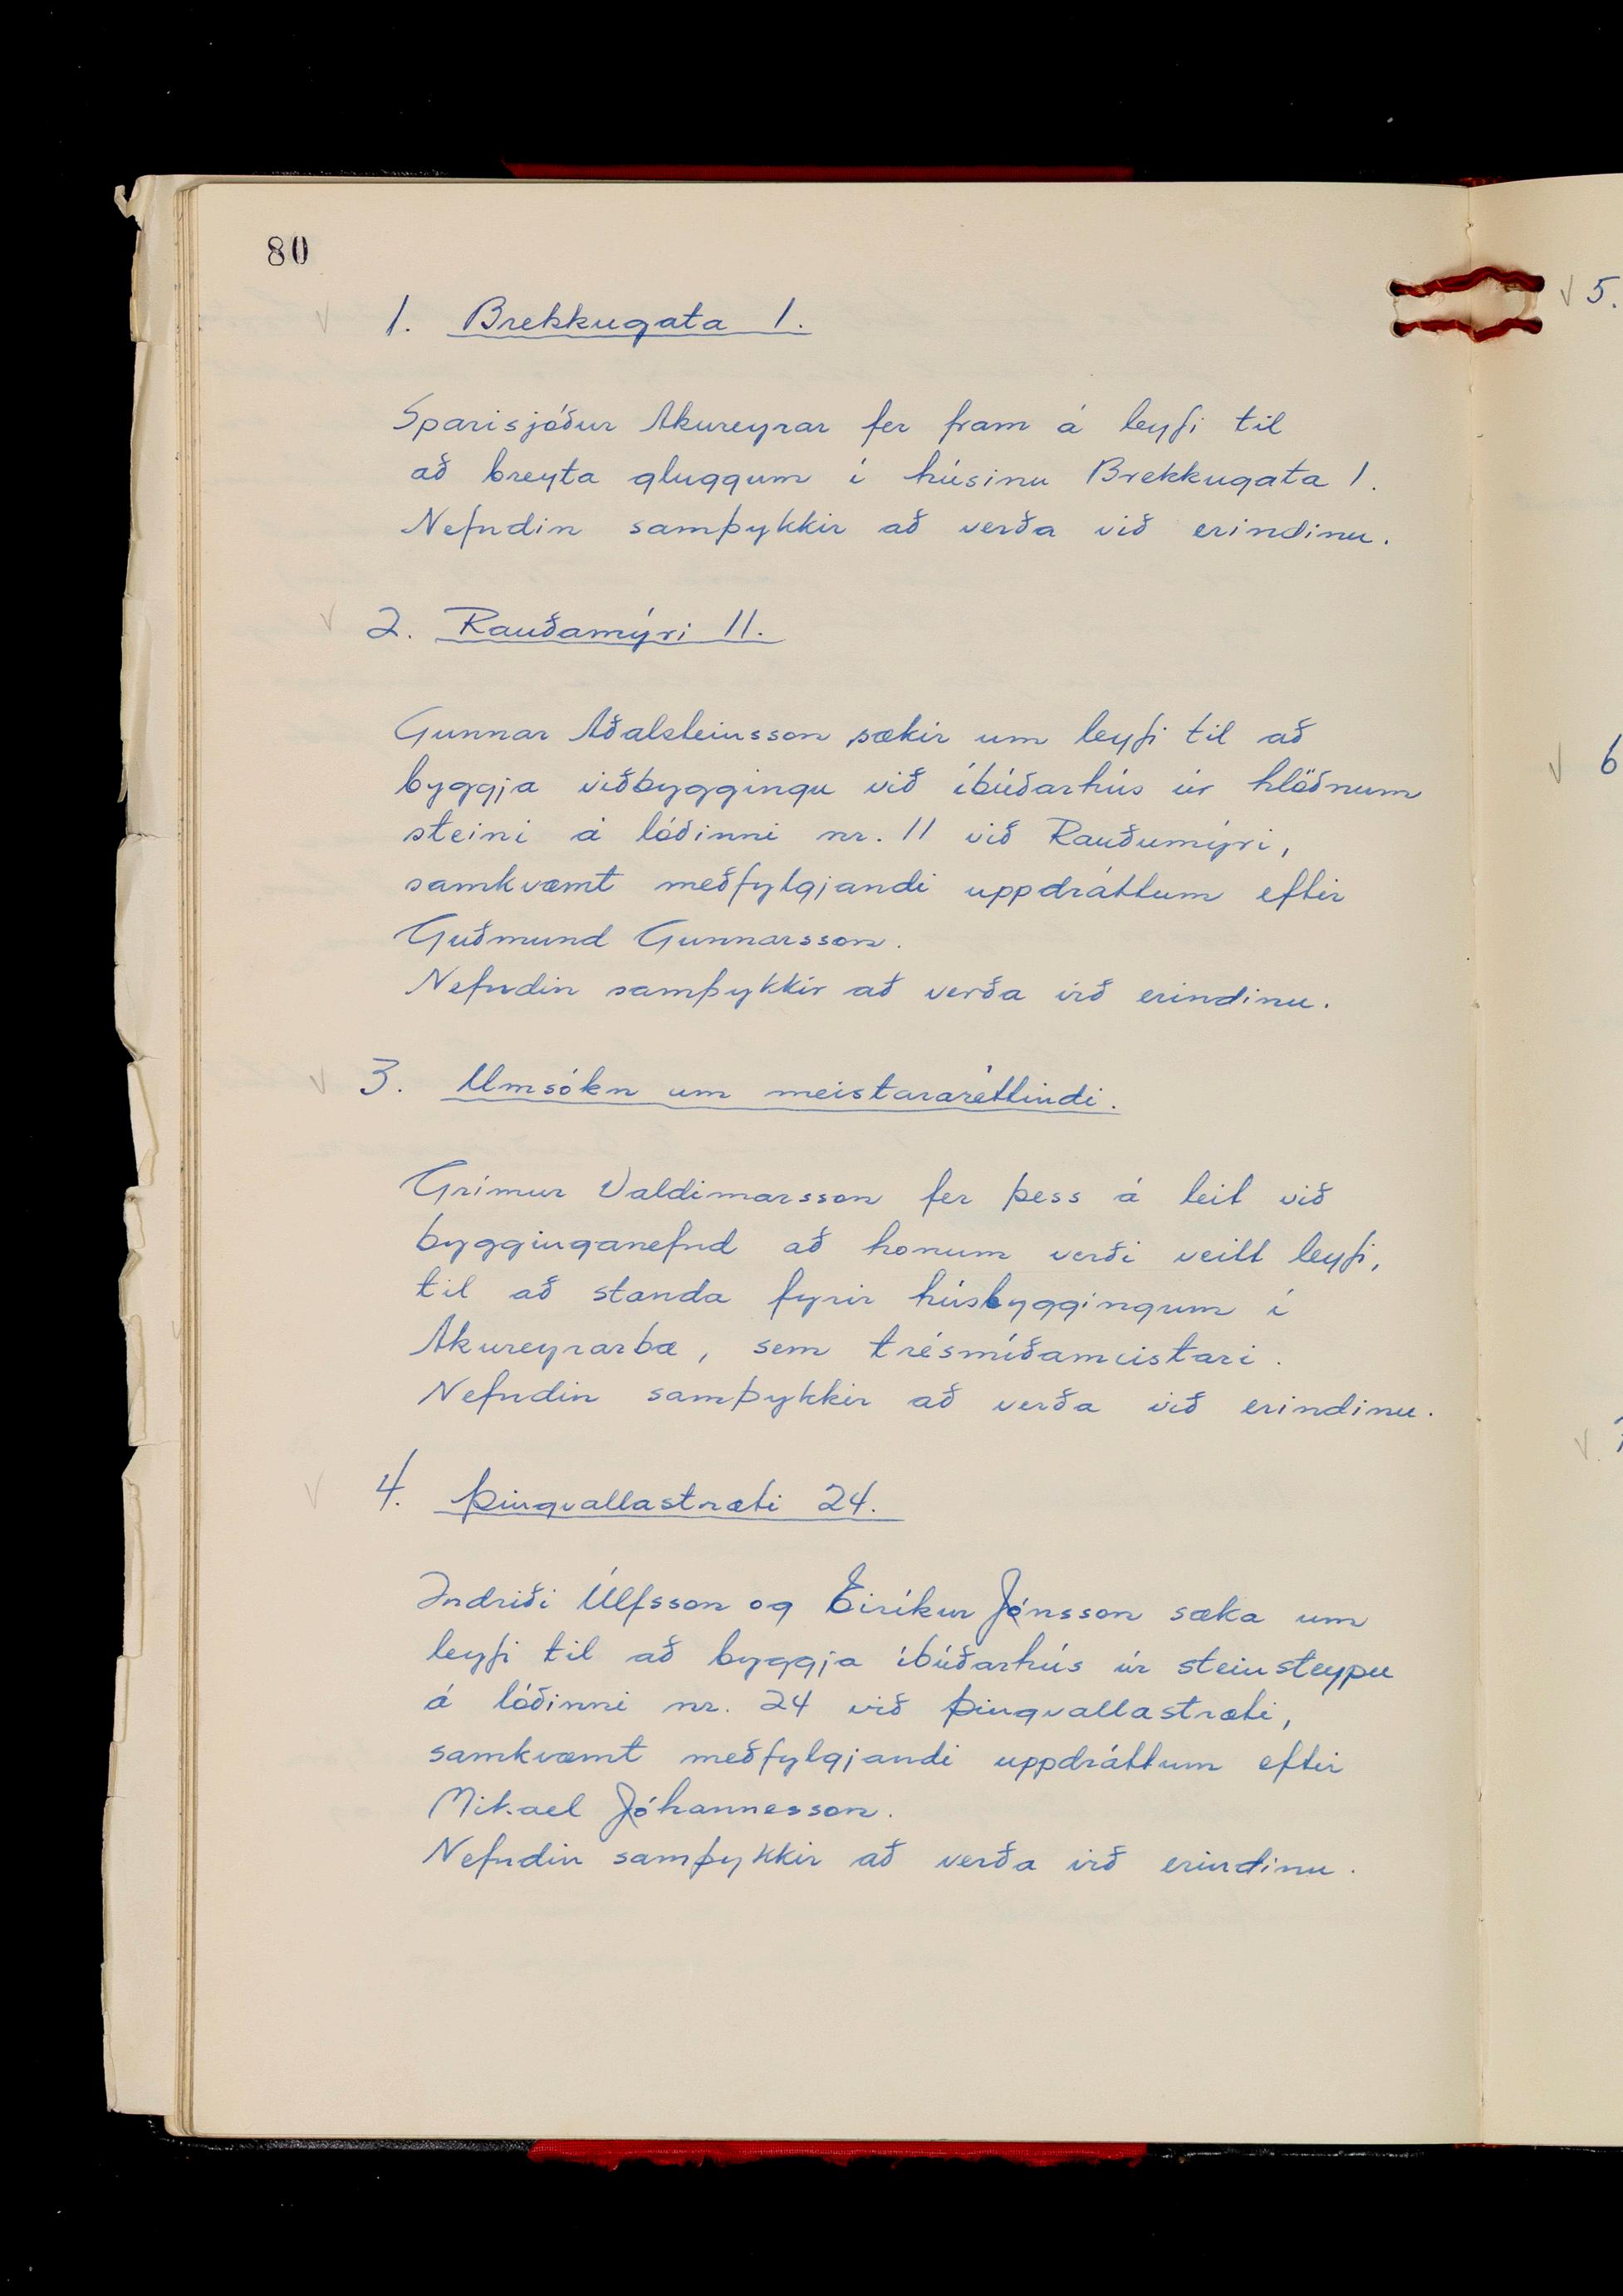 80
1. Brekkugata 1.
Sparisjóður Akureyrar fer fram á leyfi til
að breyta gluggum í húsinu Brekkugata 1.
Nefndin samþykkir að verða við erindinu.
2. Rauðamýri 11.
Gunnar Aðalsteinsson sækir um leyfi til að
byggja viðbyggingu við íbúðarhús úr hlöðnum
steini á lóðinni nr. 11 við Rauðumýri,
samkvæmt meðfylgjandi uppdráttum eftir
Guðmund Gunnarsson.
Nefndin samþykkir að verða við erindinu.
3. Umsókn um meistararéttindi.
Grímur Valdimarsson fer þess á leit við
bygginganefnd að honum verði veitt leyfi,
til að standa fyrir húsbyggingum í
Akureyrarbæ, sem trésmíðameistari.
Nefndin samþykkir að verða við erindinu.
4. Þingvallastræti 24.
Indriði Úlfsson og Eiríkur Jónsson sæka um
leyfi til að byggja íbúðarhús úr steinsteypu
á lóðinni nr. 24 við Þingvallastræti,
samkvæmt meðfylgjandi uppdráttum eftir
Mikael Jóhannesson.
Nefndin samþykkir að verða við erindinu.
5.
6